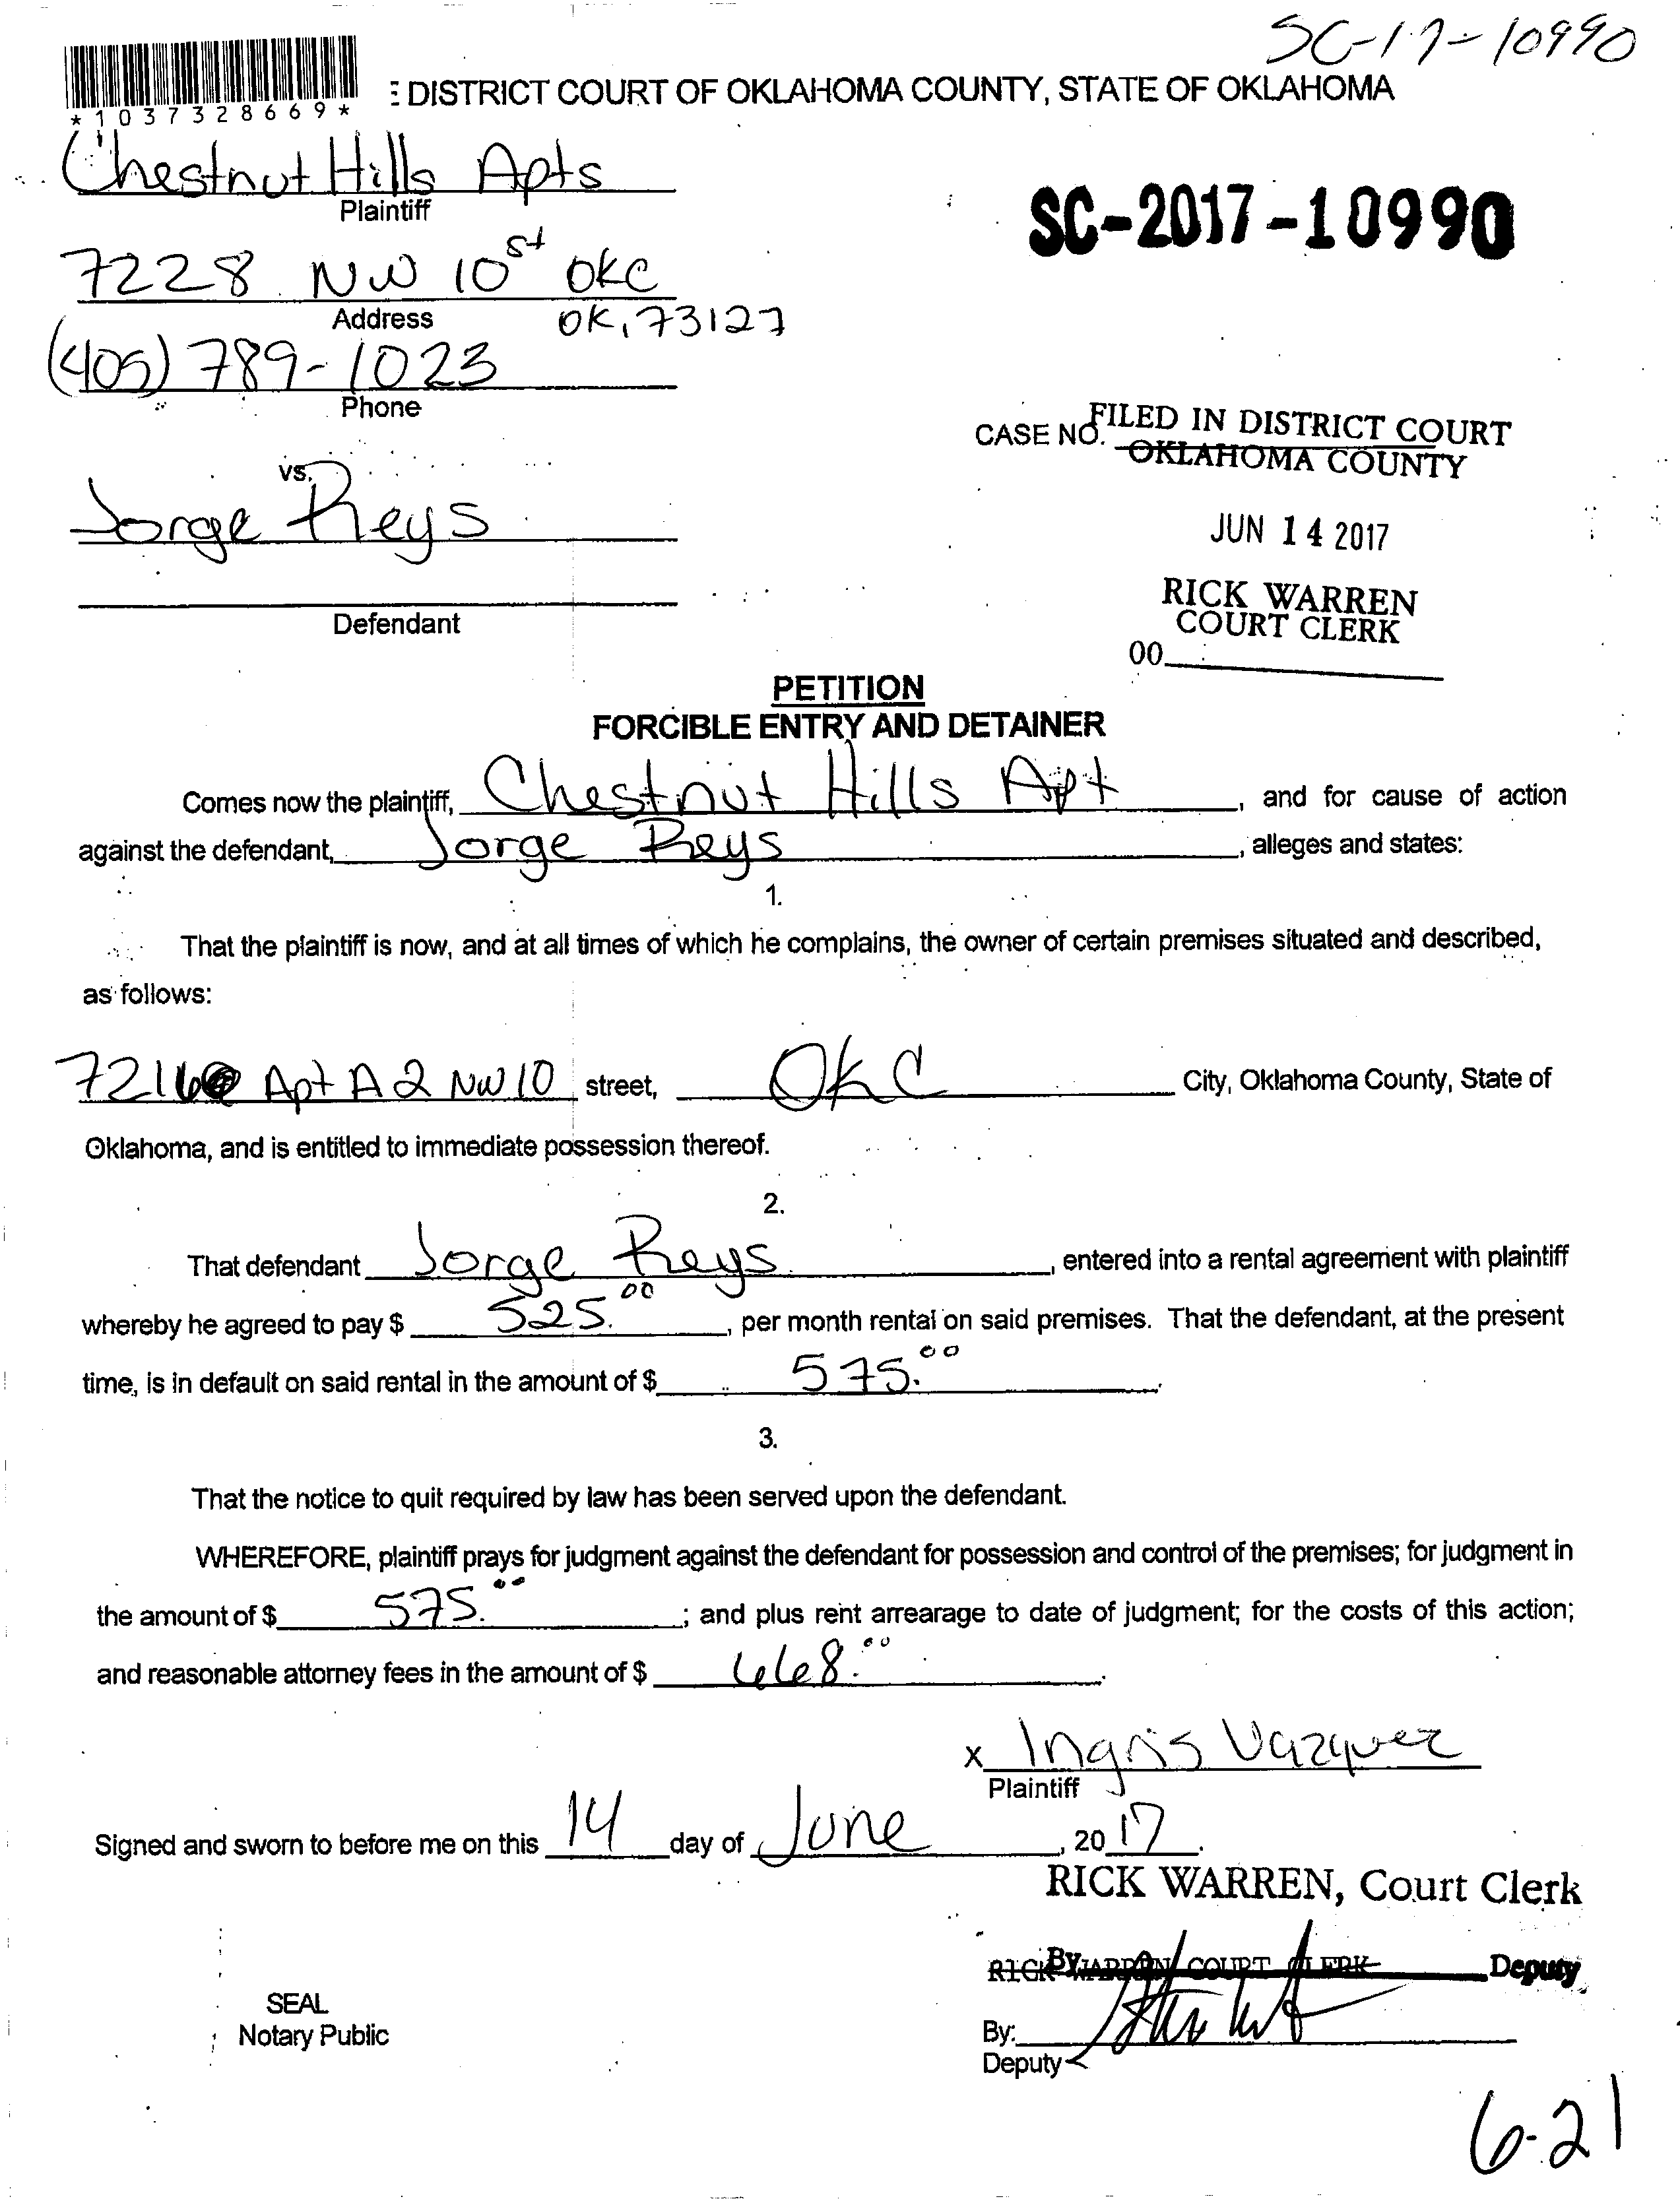 SC-17-10990
*1037328669*
E DISTRICT COURT OF OKLAHOMA COUNTY, STATE OF OKLAHOMA
Chestnut Hills Apts
Plaintiff
SC-2017-10990
7228 NW 10 st OKC
Address
OK, 73127
(405) 789-1023
Phone
CASE NO.
FILED IN DISTRICT COURT
OKLAHOMA COUNTY
vs.
Jorge Reys
JUN 14 2017
RICK WARREN
COURT CLERK
Defendant
00
PETITION
FORCIBLE ENTRY AND DETAINER
Comes now the plaintiff, Chestnut Hills Apt, and for cause of action
against the defendant, Jorge Reys, alleges and states:
1.
That the plaintiff is now, and at all times of which he complains, the owner of certain premises situated and described,
as follows:
7216 Apt A2 NW 10 street, OKC City, Oklahoma County, State of
Oklahoma, and is entitled to immediate possession thereof.
2.
That defendant Jorge Reys, entered into a rental agreement with plaintiff
whereby he agreed to pay $ 525.00, per month rental on said premises. That the defendant, at the present
time, is in default on said rental in the amount of $ 575.00.
3.
That the notice to quit required by law has been served upon the defendant.
WHEREFORE, plaintiff prays for judgment against the defendant for possession and control of the premises; for judgment in
the amount of $ 575.00; and plus rent arrearage to date of judgment; for the costs of this action;
and reasonable attorney fees in the amount of $ 668.00.
x Ingris Vazquez
Plaintiff
Signed and sworn to before me on this 14 day of June, 2017.
RICK WARREN, Court Clerk
RICK WARREN COURT CLERK
By Deputy
SEAL
Notary Public
By:
Deputy
6-21